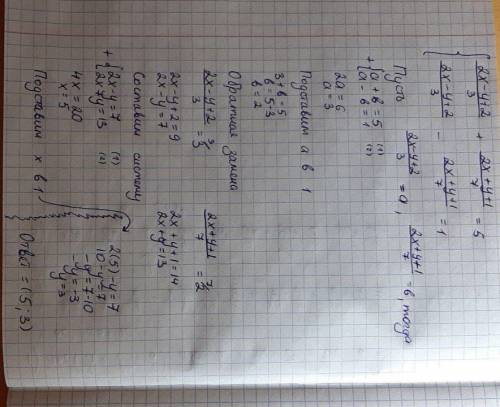 { (2x-y+2)/3 + (2x+y+1)/7 = 5
(2x-y+2)/3 - (2x+y+1)/7 = 1
Пусть (2x-y+2)/3 = a, (2x+y+1)/7 = b, тогда
+ { a + b = 5 (1)
a - b = 1 (2)
2a = 6
a = 3
Подставим a в 1
3 + b = 5
b = 5-3
b = 2
Обратная замена
(2x-y+2)/3 = 3/ (2x+y+1)/7 = 2/
2x-y+2=9 2x+y+1=14
2x-y=7 2x+y=13
Составим систему
+ { 2x-y=7 (1)
2x+y=13 (2)
4x=20
x=5
Подставим x в 1
2(5)-y=7
10-y=7
-y=7-10
-y=-3
y=3
Ответ = (5;3)